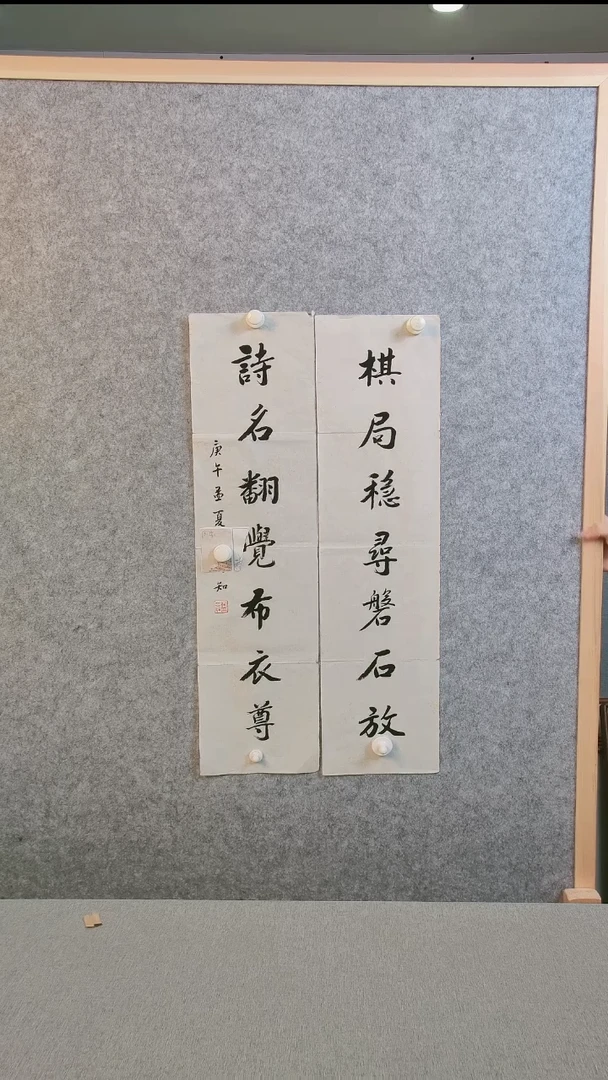 棋局穩尋磐石放
詩名翻覺布衣尊
庚午孟夏
知